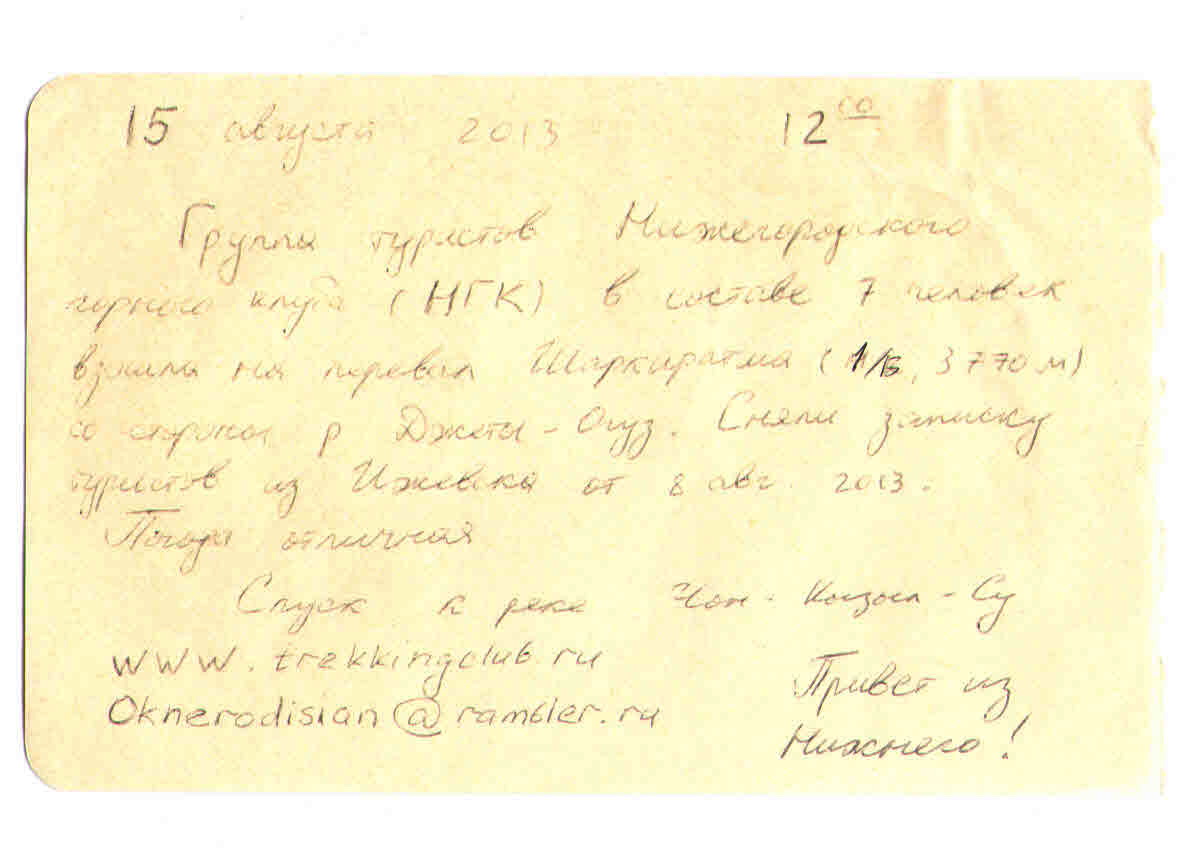 15 августа 2013 12⁰⁰
Группа туристов Нижегородского
горного клуба (НГК) в составе 7 человек
взошла на перевал Шаркыратма (1Б, 3770 м)
со стороны р Джеты-Огуз. Сняли записку
туристов из Ижевска от 8 авг. 2013.
Погода отличная
Спуск к реке Чон-Кызыл-Су
www.trekkingclub.ru
Oknerodisian@rambler.ru
Привет из
Нижнего!